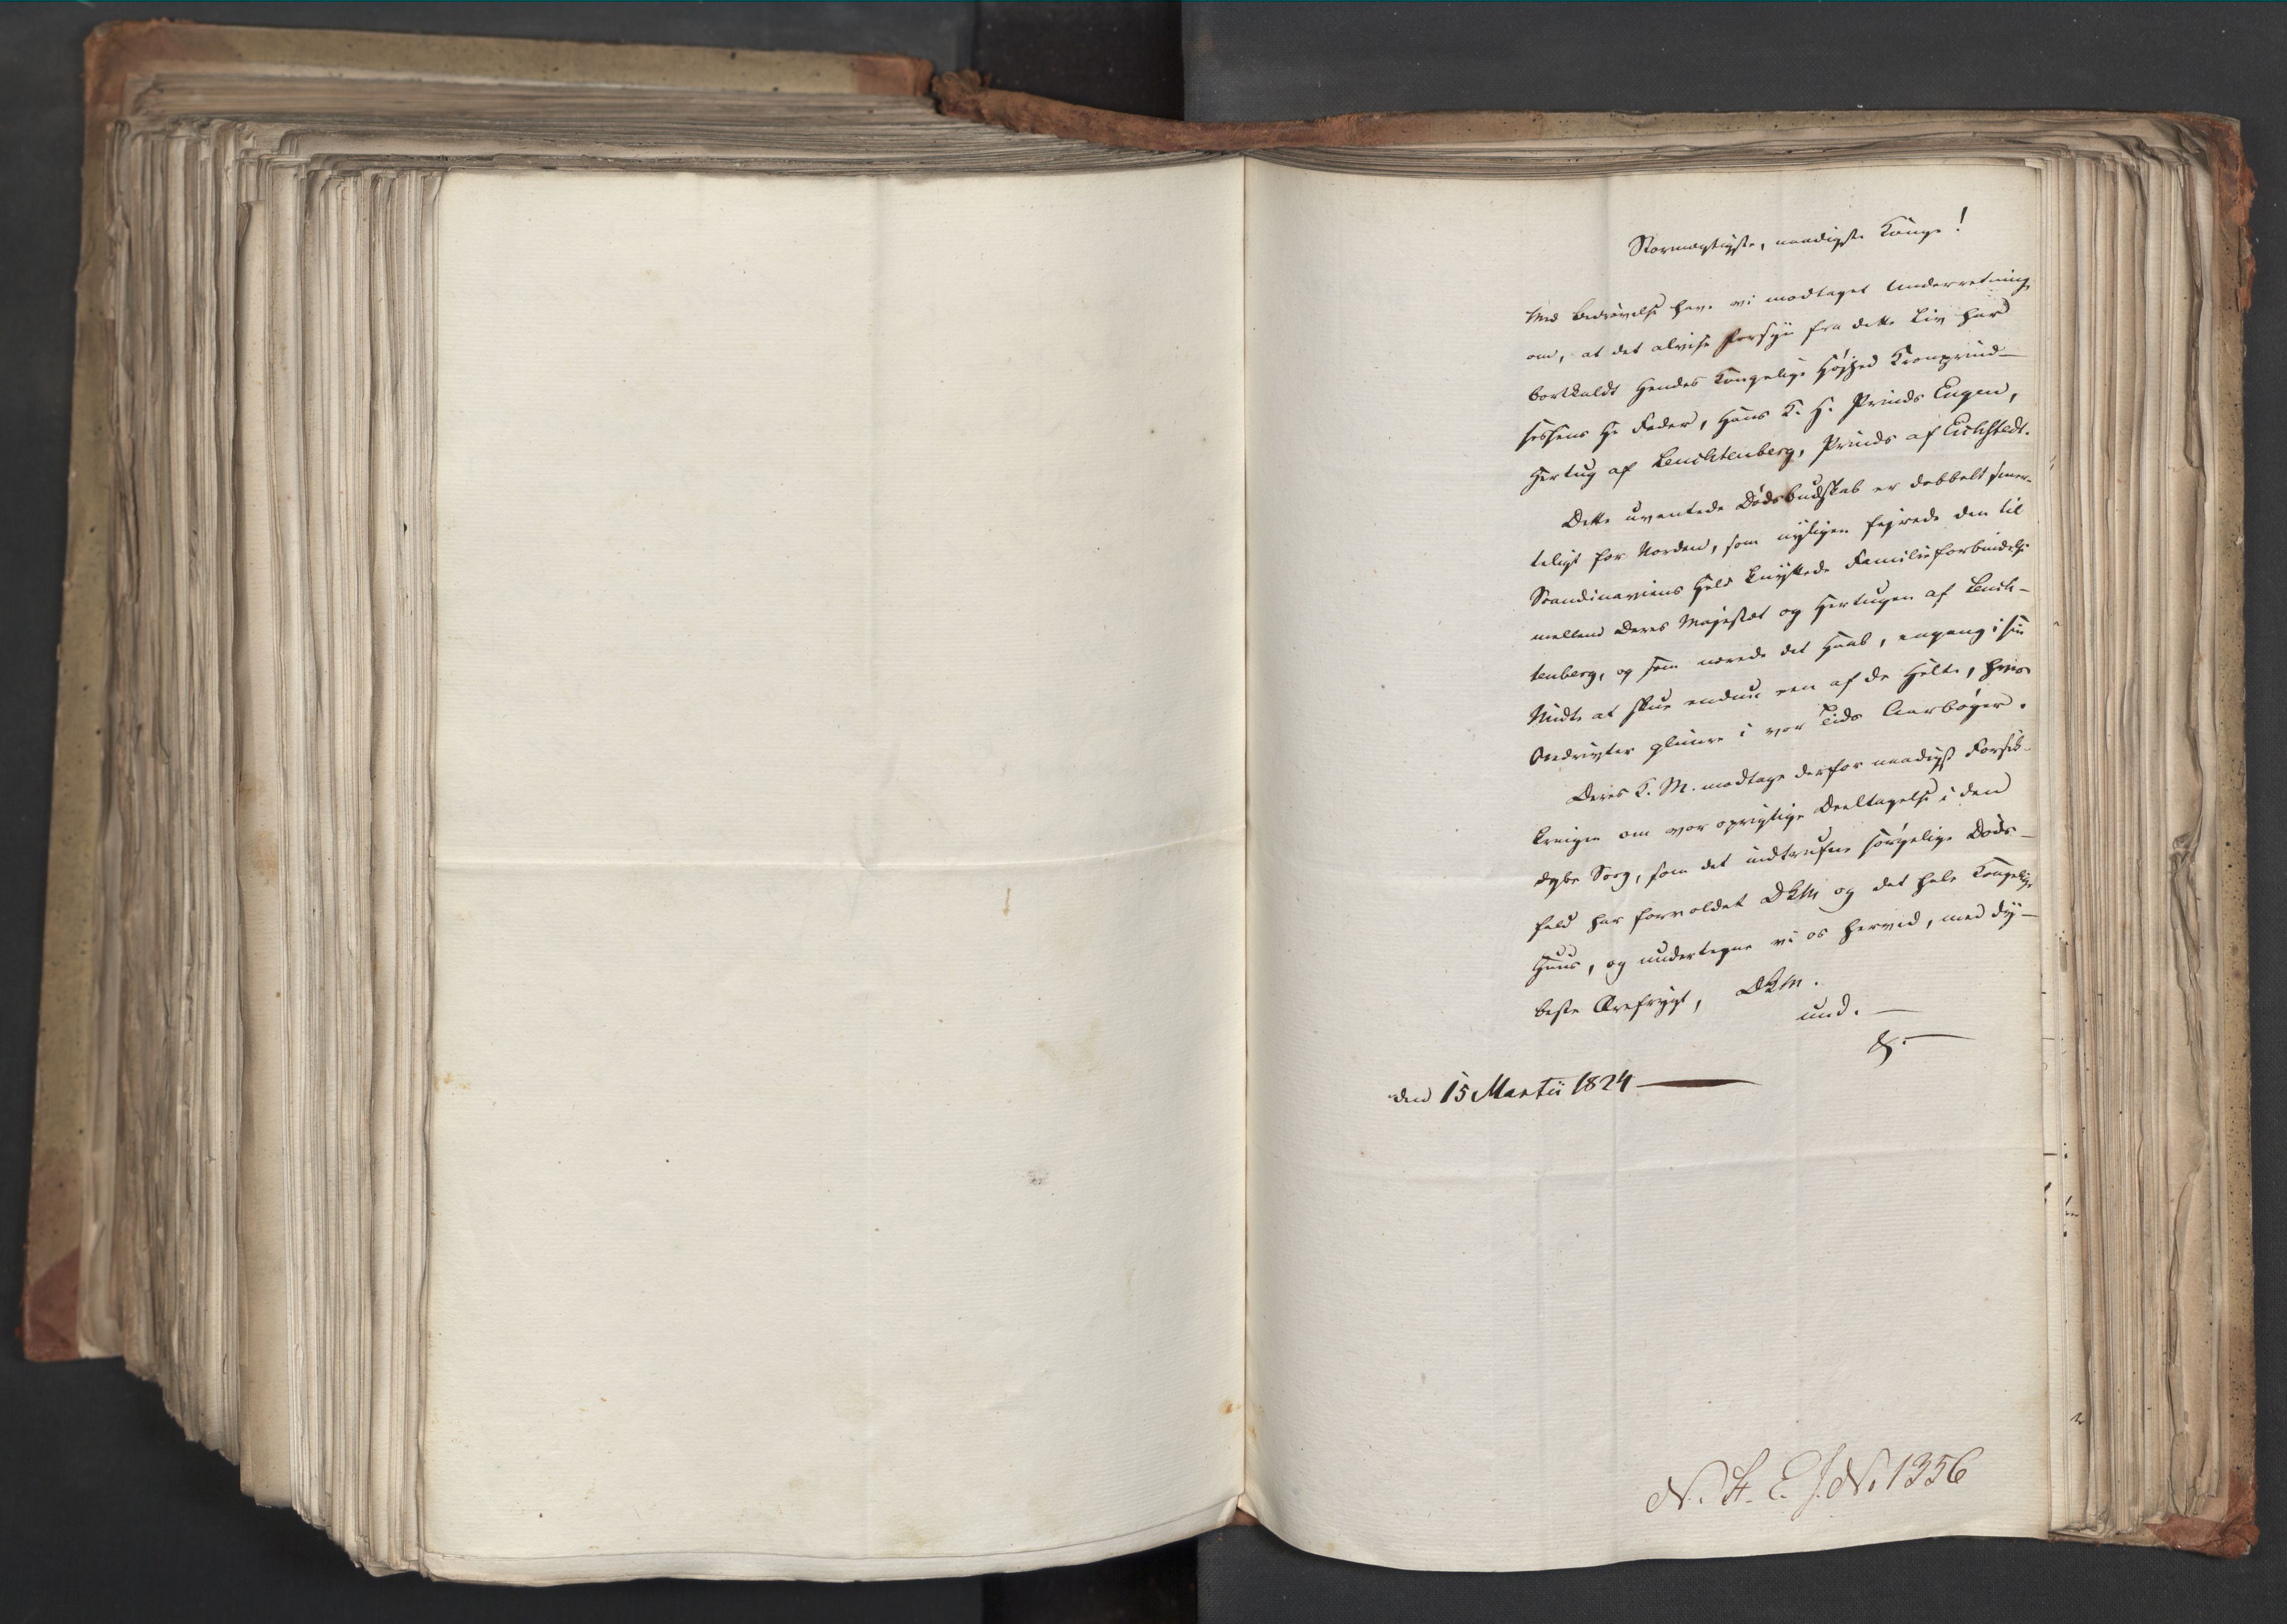 Stormægtigste, naadigste Konge!
Med Bedrøvelse have vi modtaget Underretning
om, at det alvise Forsyn fra dette Liv har
bortkaldt Hendes Kongelige Høihed Kronprind-
sessens Hr Fader, Hans K. H. Prinds Eugen,
Hertug af Leuchtenberg, Prinds af Eichstedt.
Dette uventede Dødsbudskab er dobbelt smer-
teligt for Norden, som nyligen feirede den til
Scandinaviens Held knyttede Familieforbindelse
mellem Deres Majestæt og Hertugen af Leuch-
tenberg, og som nærede det Haab, engang i sin
Midte at skue endnu een af de Helte, hvis
Bedrivter glimre i vor Tids Aarbøger.
Deres K. M. modtage derfor naadigst Forsik-
kringen om vor oprigtige Deeltagelse i den
dybe Sorg, som det indtrufne sørgelige Døds-
fald har forvoldet DKM og det hele Kongelige
Huus, og undertegne vi os herved, med dy-
beste Ærefrygt, DKM.
und. —
S. —
den 15 Martii 1824 —
N. St. E. J. No 1356